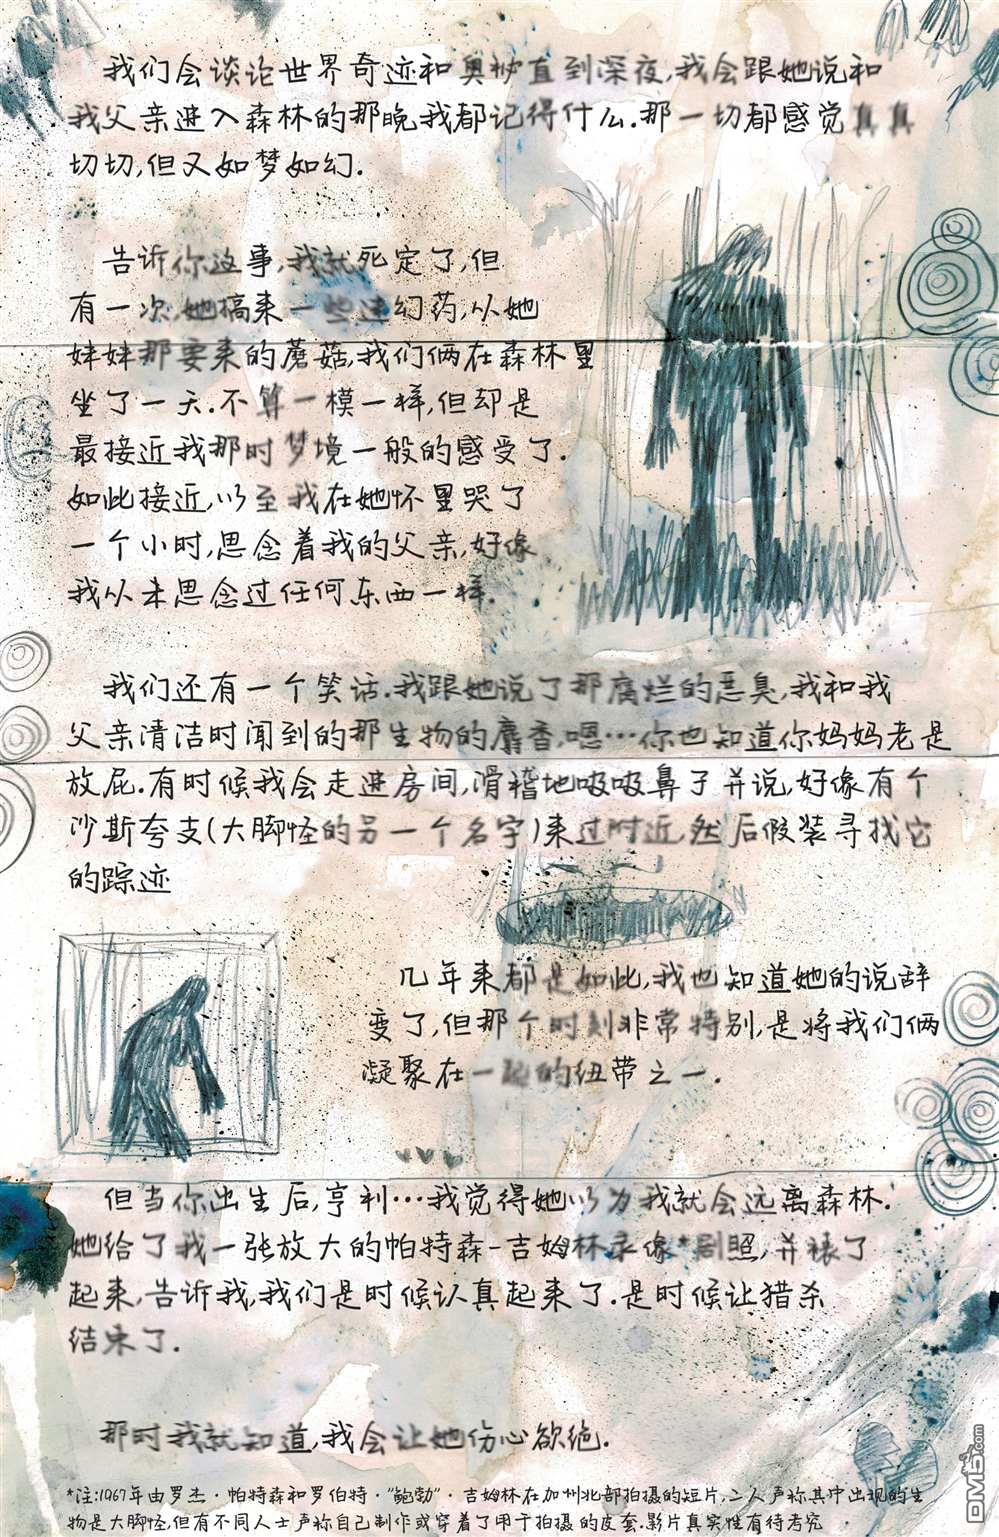 我们会谈论世界奇迹和奥秘直到深夜,我会跟她说和
我父亲进入森林的那晚我都记得什么.那一切都感觉真真
切切,但又如梦如幻.
告诉你这事,我就死定了,但
有一次,她搞来一些迷幻药,从她
妹妹那要来的蘑菇,我们俩在森林里
坐了一天.不算一模一样,但却是
最接近我那时梦境一般的感受了.
如此接近,以至我在她怀里哭了
一个小时,思念着我的父亲,好像
我从未思念过任何东西一样.
我们还有一个笑话.我跟她说了那腐烂的恶臭,我和我
父亲清洁时闻到的那生物的麝香,嗯…你也知道你妈妈老是
放屁.有时候我会走进房间,滑稽地吸吸鼻子并说,好像有个
沙斯夸支(大脚怪的另一个名字)来过附近,然后假装寻找它
的踪迹
几年来都是如此,我也知道她的说辞
变了,但那个时刻非常特别,是将我们俩
凝聚在一起的纽带之一.
但当你出生后,亨利…我觉得她以为我就会远离森林.
她给了我一张放大的帕特森-吉姆林录像*剧照,并裱了
起来,告诉我,我们是时候认真起来了.是时候让猎杀
结束了.
那时我就知道,我会让她伤心欲绝.
*注:1967年由罗杰·帕特森和罗伯特·"鲍勃"·吉姆林在加州北部拍摄的短片,二人声称其中出现的生
物是大脚怪,但有不同人士声称自己制作或穿着了用于拍摄的皮套.影片真实性有待考究
DM5.com